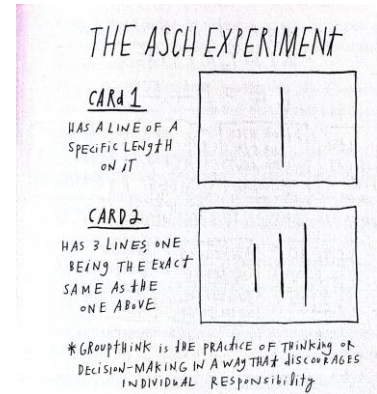 THE ASCH EXPERIMENT
CARd 1
HAS A LINE OF A
SPECIFIC LENGTH
ON IT
CARD 2
HAS 3 LINES, ONE
BEING THE EXACT
SAME AS THE
ONE ABOVE
*GROUPTHINK IS THE PRACTICE OF THINKING OR
DECISION-MAKING IN A WAY THAT DISCOURAGES
INDIVIDUAL RESPONSIBILITY